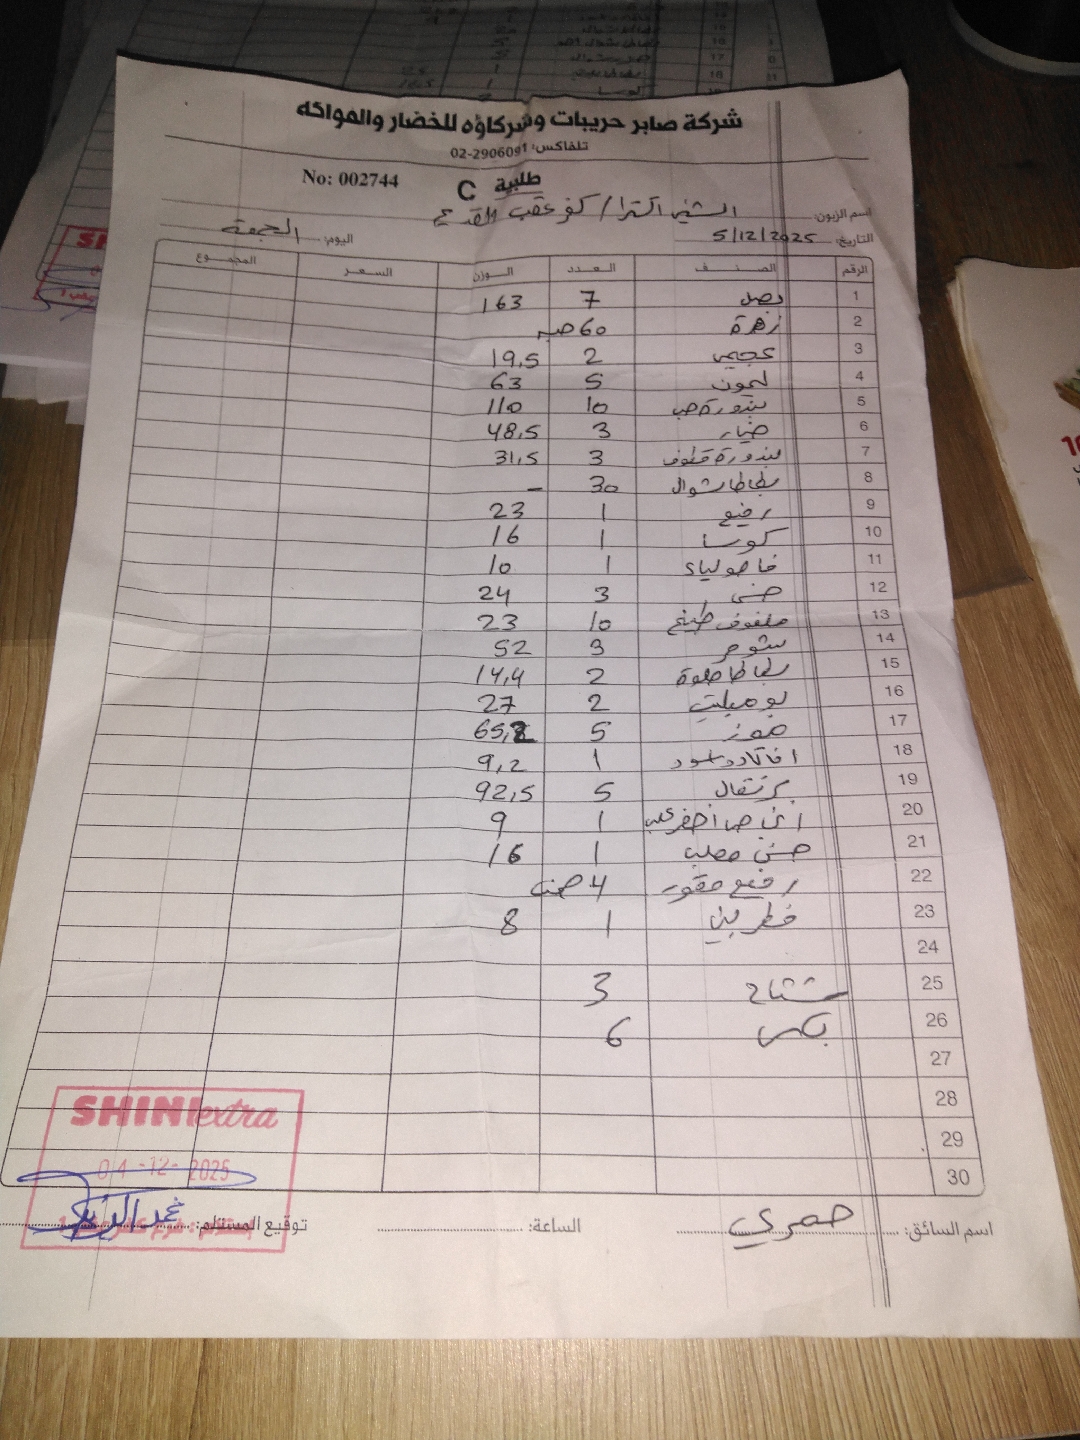 شركة صابر حريبات وشركاؤه للخضار والفواكه
تلفاكس: 02-2906091
طلبية C No: 002744
اسم الزبون: الشني اكسترا / كفر عقب
التاريخ: 5/12/2025 اليوم: الجمعة
الرقم الصنف العدد الوزن السعر المجموع
1 بصل 7 163
2 زهرة 60 حبه
3 عجمي 2 19,5
4 ليمون 5 63
5 بندورة حب 10 110
6 خيار 3 48,5
7 بندورة قطوف 3 31,5
8 بطاطا شوال 30 -
9 رفيع 1 23
10 كوسا 1 16
11 فاصولياء 1 10
12 خس 3 24
13 ملفوف طبيخ 10 23
14 شومر 3 52
15 بطاطا حلوة 2 14,4
16 بوميليت 2 27
17 موز 5 65,2
18 افاكادو اسود 1 9,2
19 برتقال 5 92,5
20 1 9
21 1 16
22 رفيع منقور 4
23 1 8
24
25 مشتاح 3
26 بكس 6
27
28
29
30
SHINI extra
04-12-2025
اسم السائق: حمري الساعة: توقيع المستلم: